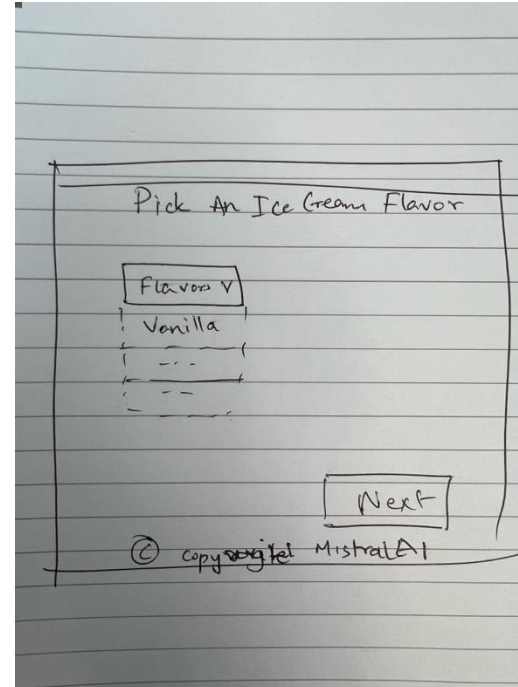 Pick An Ice Cream Flavor
Flavors V
Vanilla
---
--
Next
© MistralAI